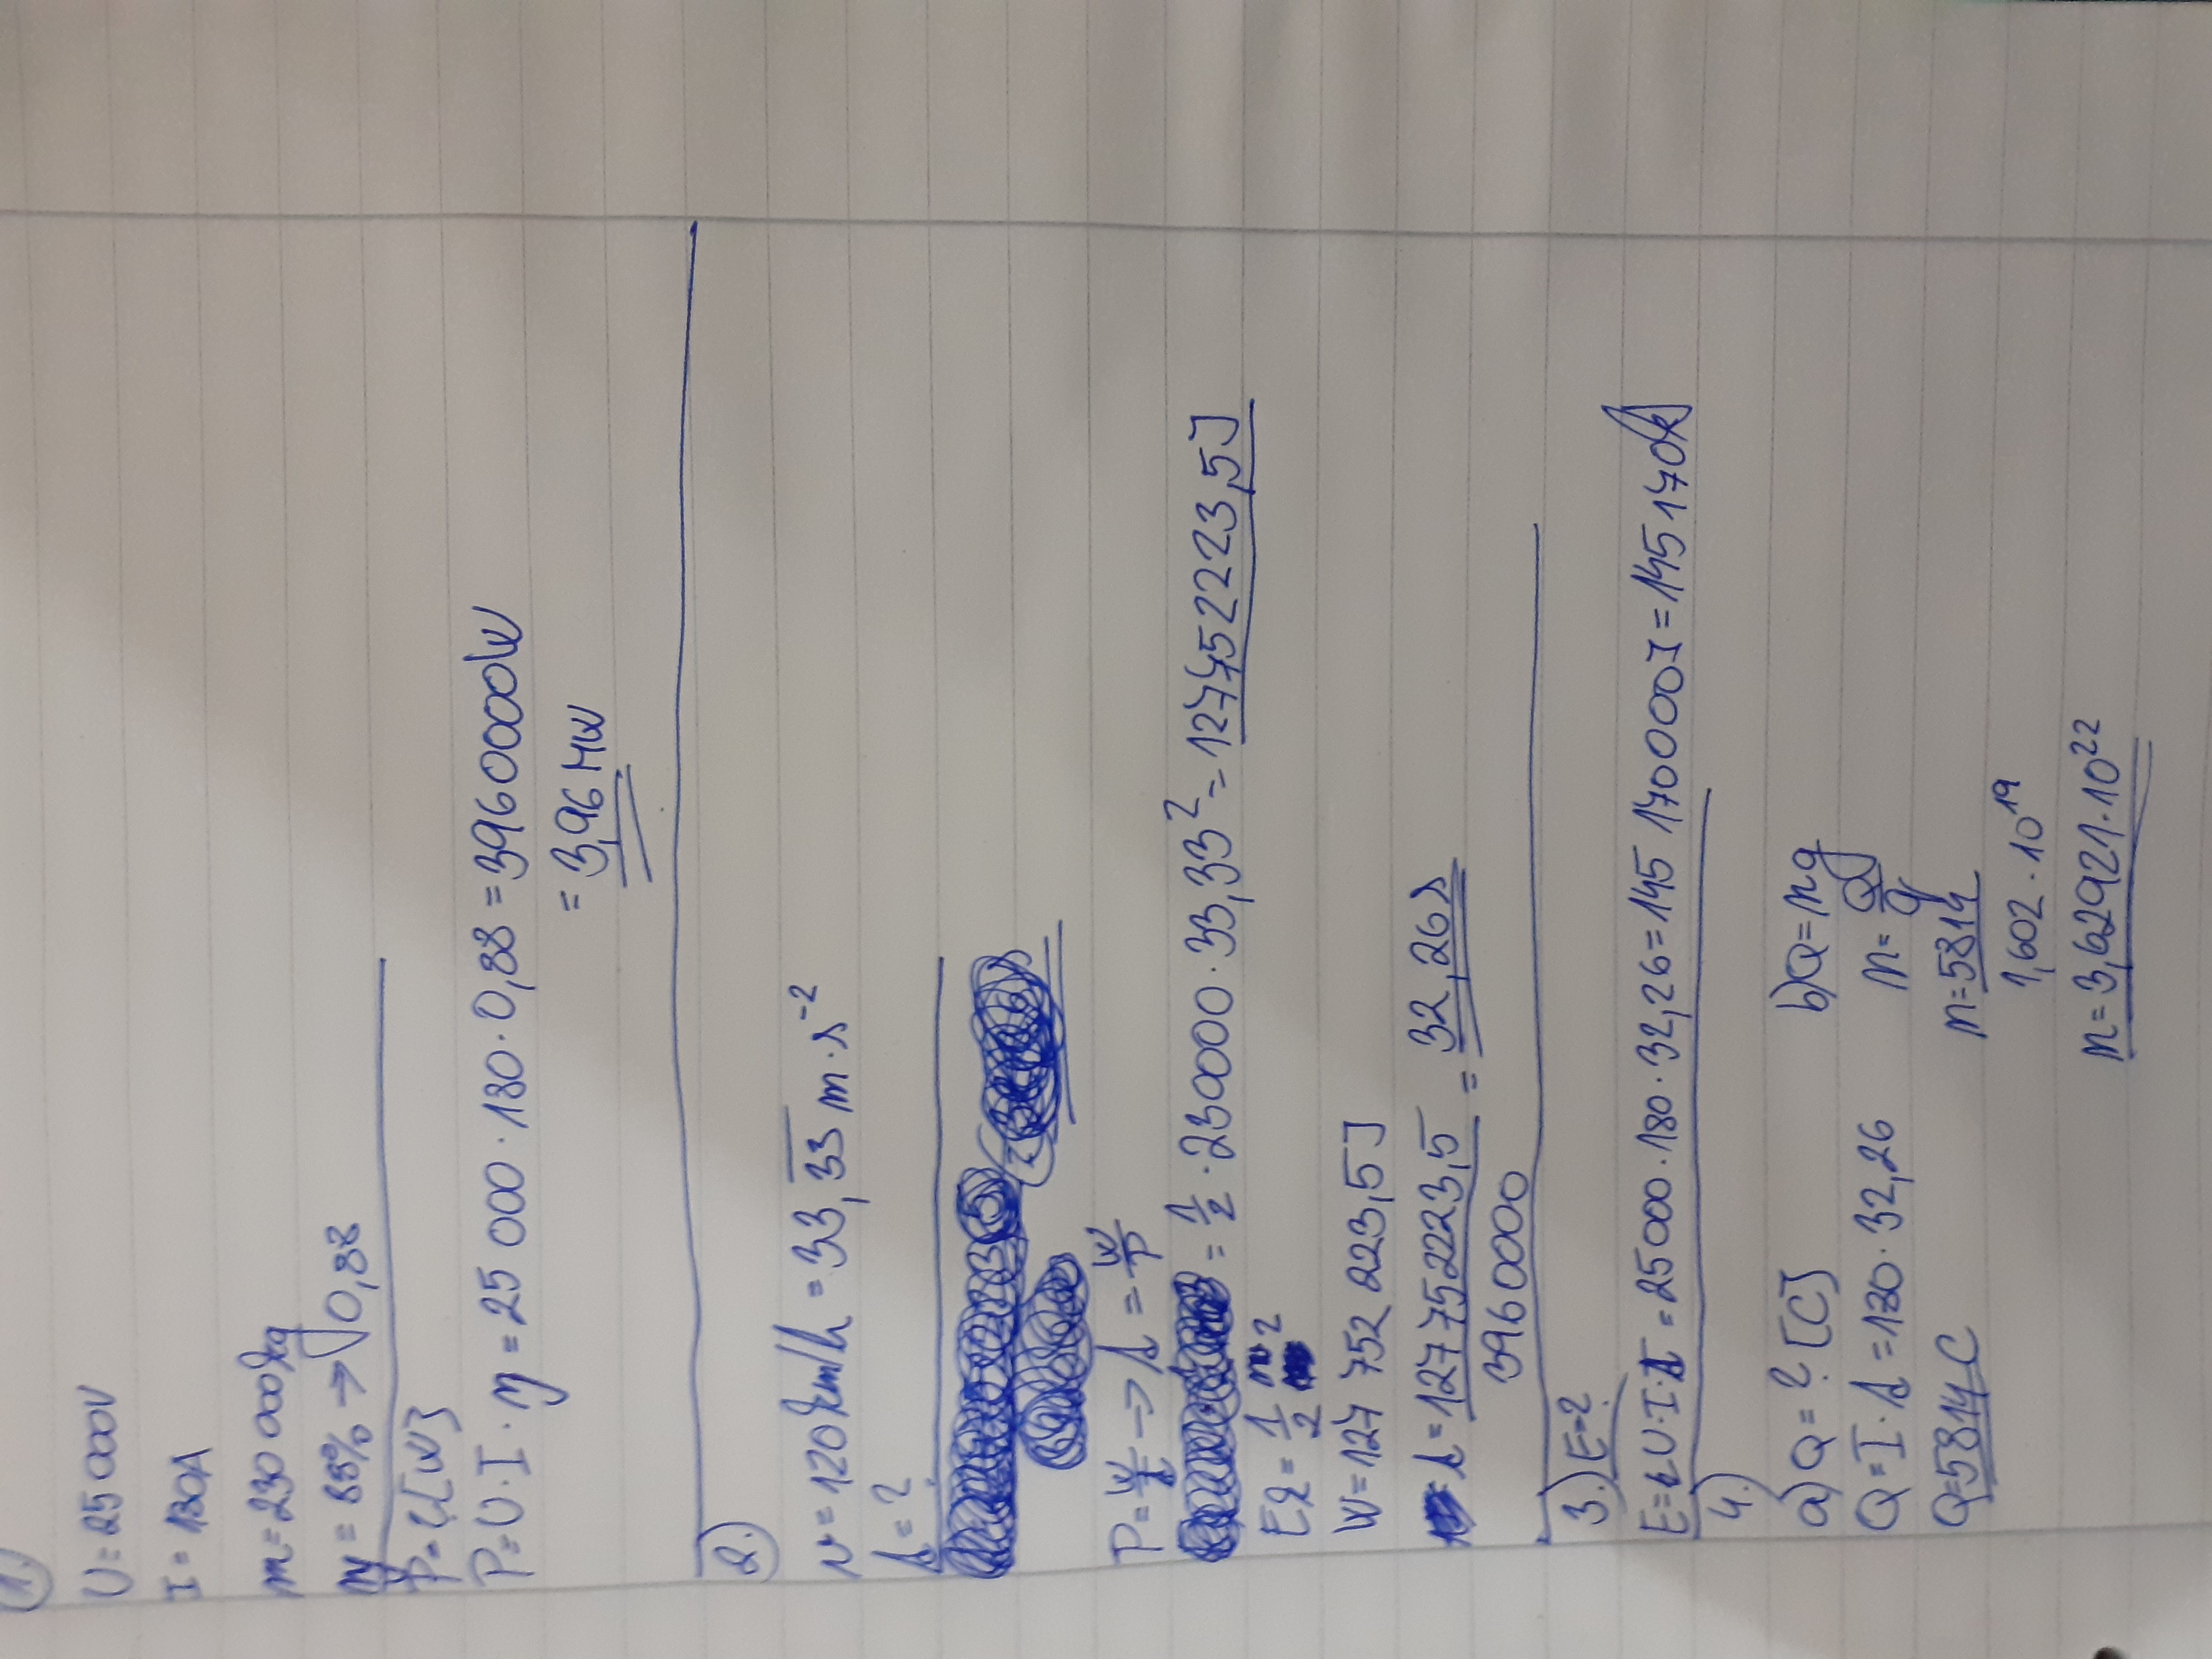 1.
U = 25 000V
I = 180A
m = 230 000kg
η = 88% → 0,88
P = ? [W]
P = U · I · η = 25 000 · 180 · 0,88 = 3960000W
= 3,96 MW
2.)
v = 120km/h = 33,33 m · s⁻²
t = ?
P = W/t → t = W/P
= 1/2 · 230000 · 33,33² = 127752223,5J
Ek = 1/2 mv²
W = 127 752 223,5J
t = 127752223,5 / 3960000 = 32,26s
3.) E = ?
E = U · I · t = 25000 · 180 · 32,26 = 145 170000J = 145 170kJ
4.)
a) Q = ? [C]
Q = I · t = 180 · 32,26
Q = 5814 C
b) Q = nq
n = Q/q
n = 5814 / 1,602 · 10¹⁹
n = 3,62921 · 10²²